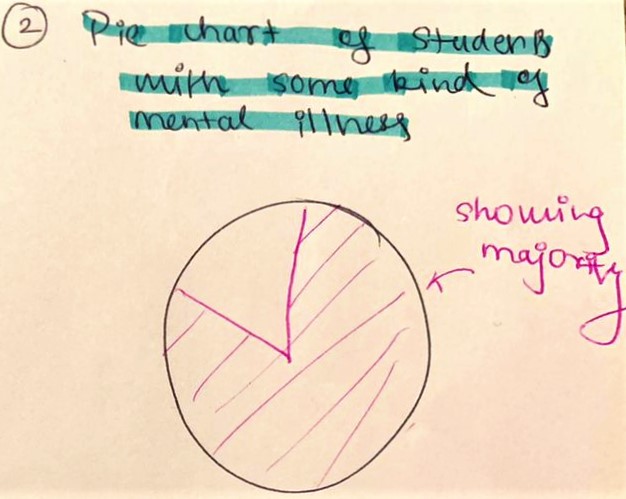 2 Pie chart of Students
with some kind of
mental illness
showing
majority